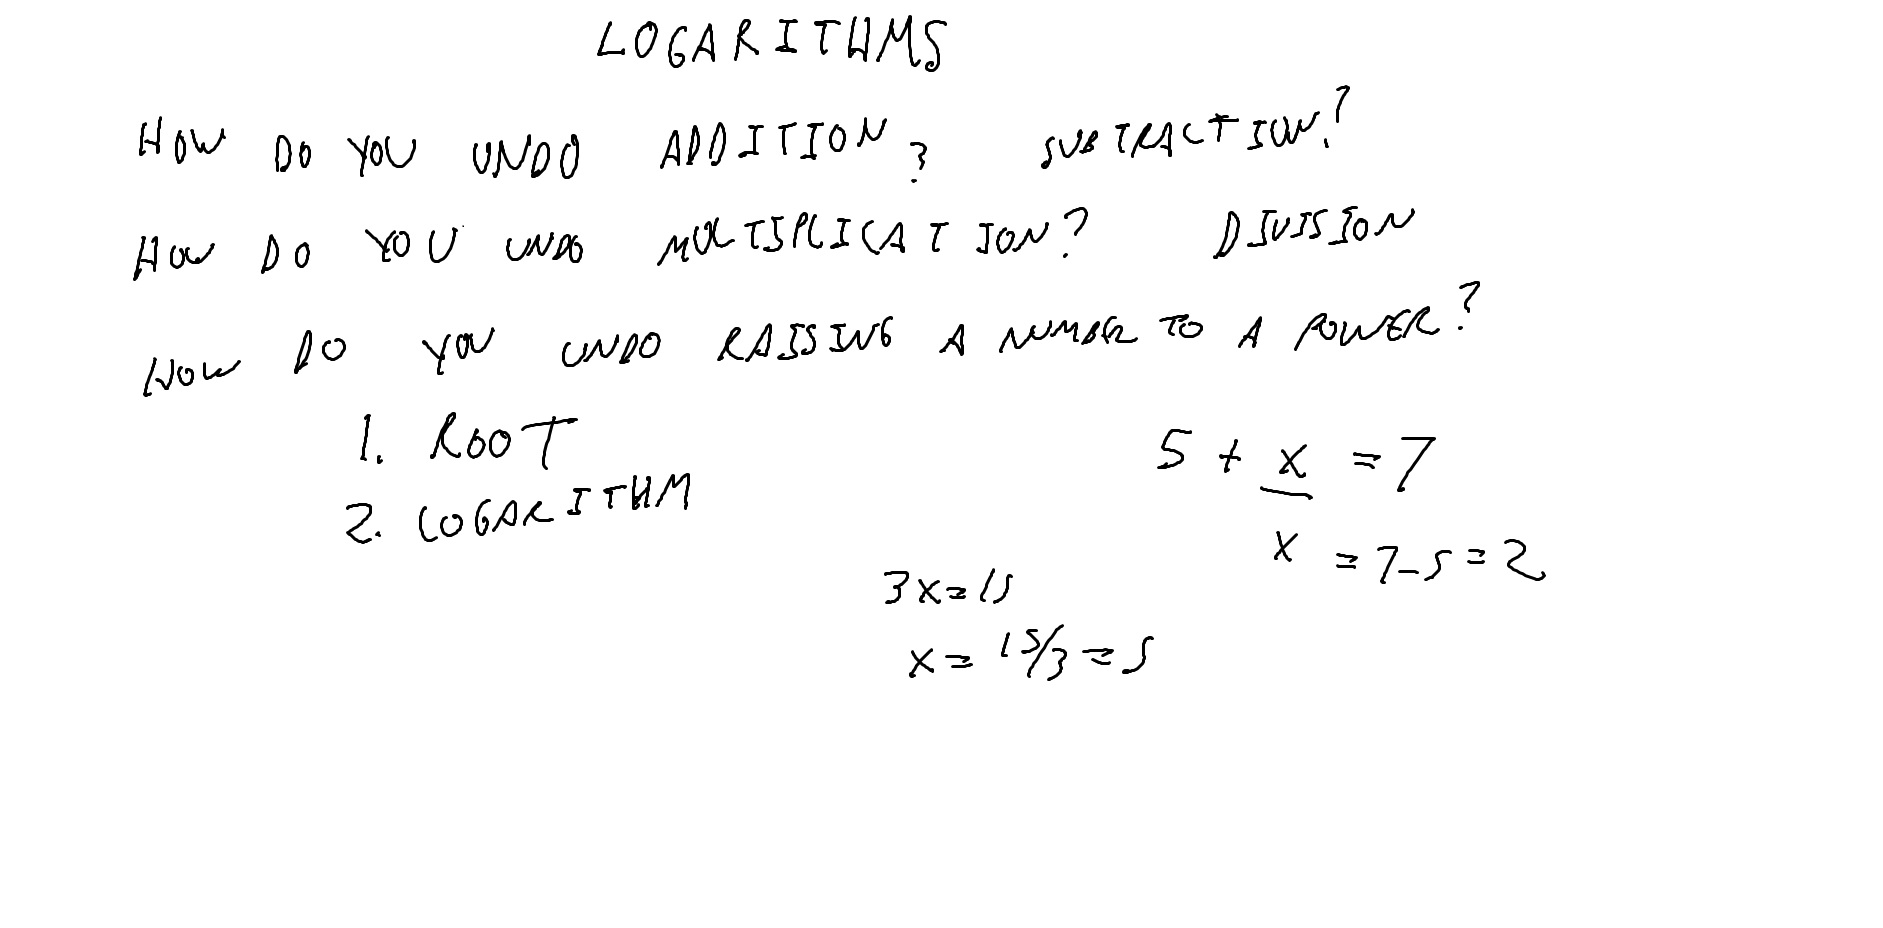 LOGARITHMS
HOW DO YOU UNDO ADDITION? SUBTRACTION?
HOW DO YOU UNDO MULTIPLICATION? DIVISION
HOW DO YOU UNDO RAISING A NUMBER TO A POWER?
1. ROOT
2. LOGARITHM
5 + x = 7
x = 7-5 = 2
3x = 15
x = 15/3 = 5